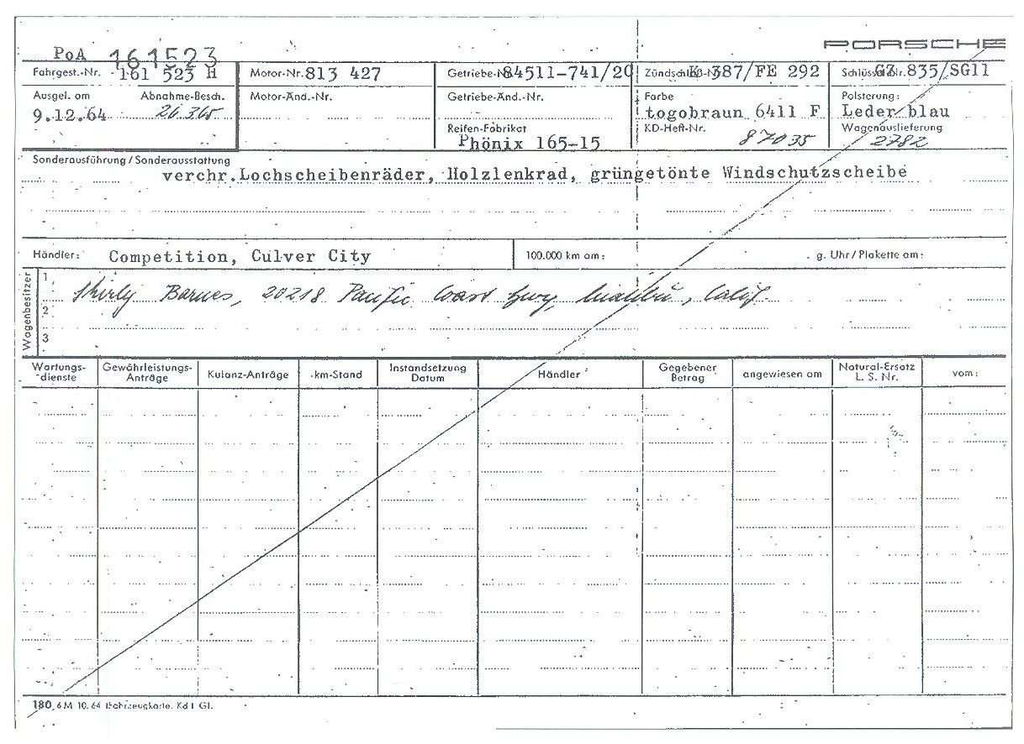 PORSCHE
PoA 161523
Fahrgest.-Nr. 161 523 H Motor-Nr. 813 427 Getriebe-Nr. 84511-741/20 Zündschl.-Nr. K 387/FE 292 Schlüssel Nr. GZ 835/SG11
Ausgel. am Abnahme-Besch. Motor-Änd.-Nr. Getriebe-Änd.-Nr. Farbe Polsterung:
9.12.64 26.3.65 togobraun 6411 F Leder blau
Reifen-Fabrikat KD-Heft-Nr. Wagenauslieferung
Phönix 165-15 87035 2782
Sonderausführung / Sonderausstattung
verchr.Lochscheibenräder, Holzlenkrad, grüngetönte Windschutzscheibe
Händler: Competition, Culver City 100.000 km am: g. Uhr / Plakette am:
Wagenbesitzer
1 Shirly Barnes, 20218 Pacific Coast hwy, Malibu, Calif.
2
3
Wartungs-dienste Gewährleistungs-Anträge Kulanz-Anträge km-Stand Instandsetzung Datum Händler Gegebener Betrag angewiesen am Natural-Ersatz L. S. Nr. vom:
180 6M 10. 64 Kd I Gl.